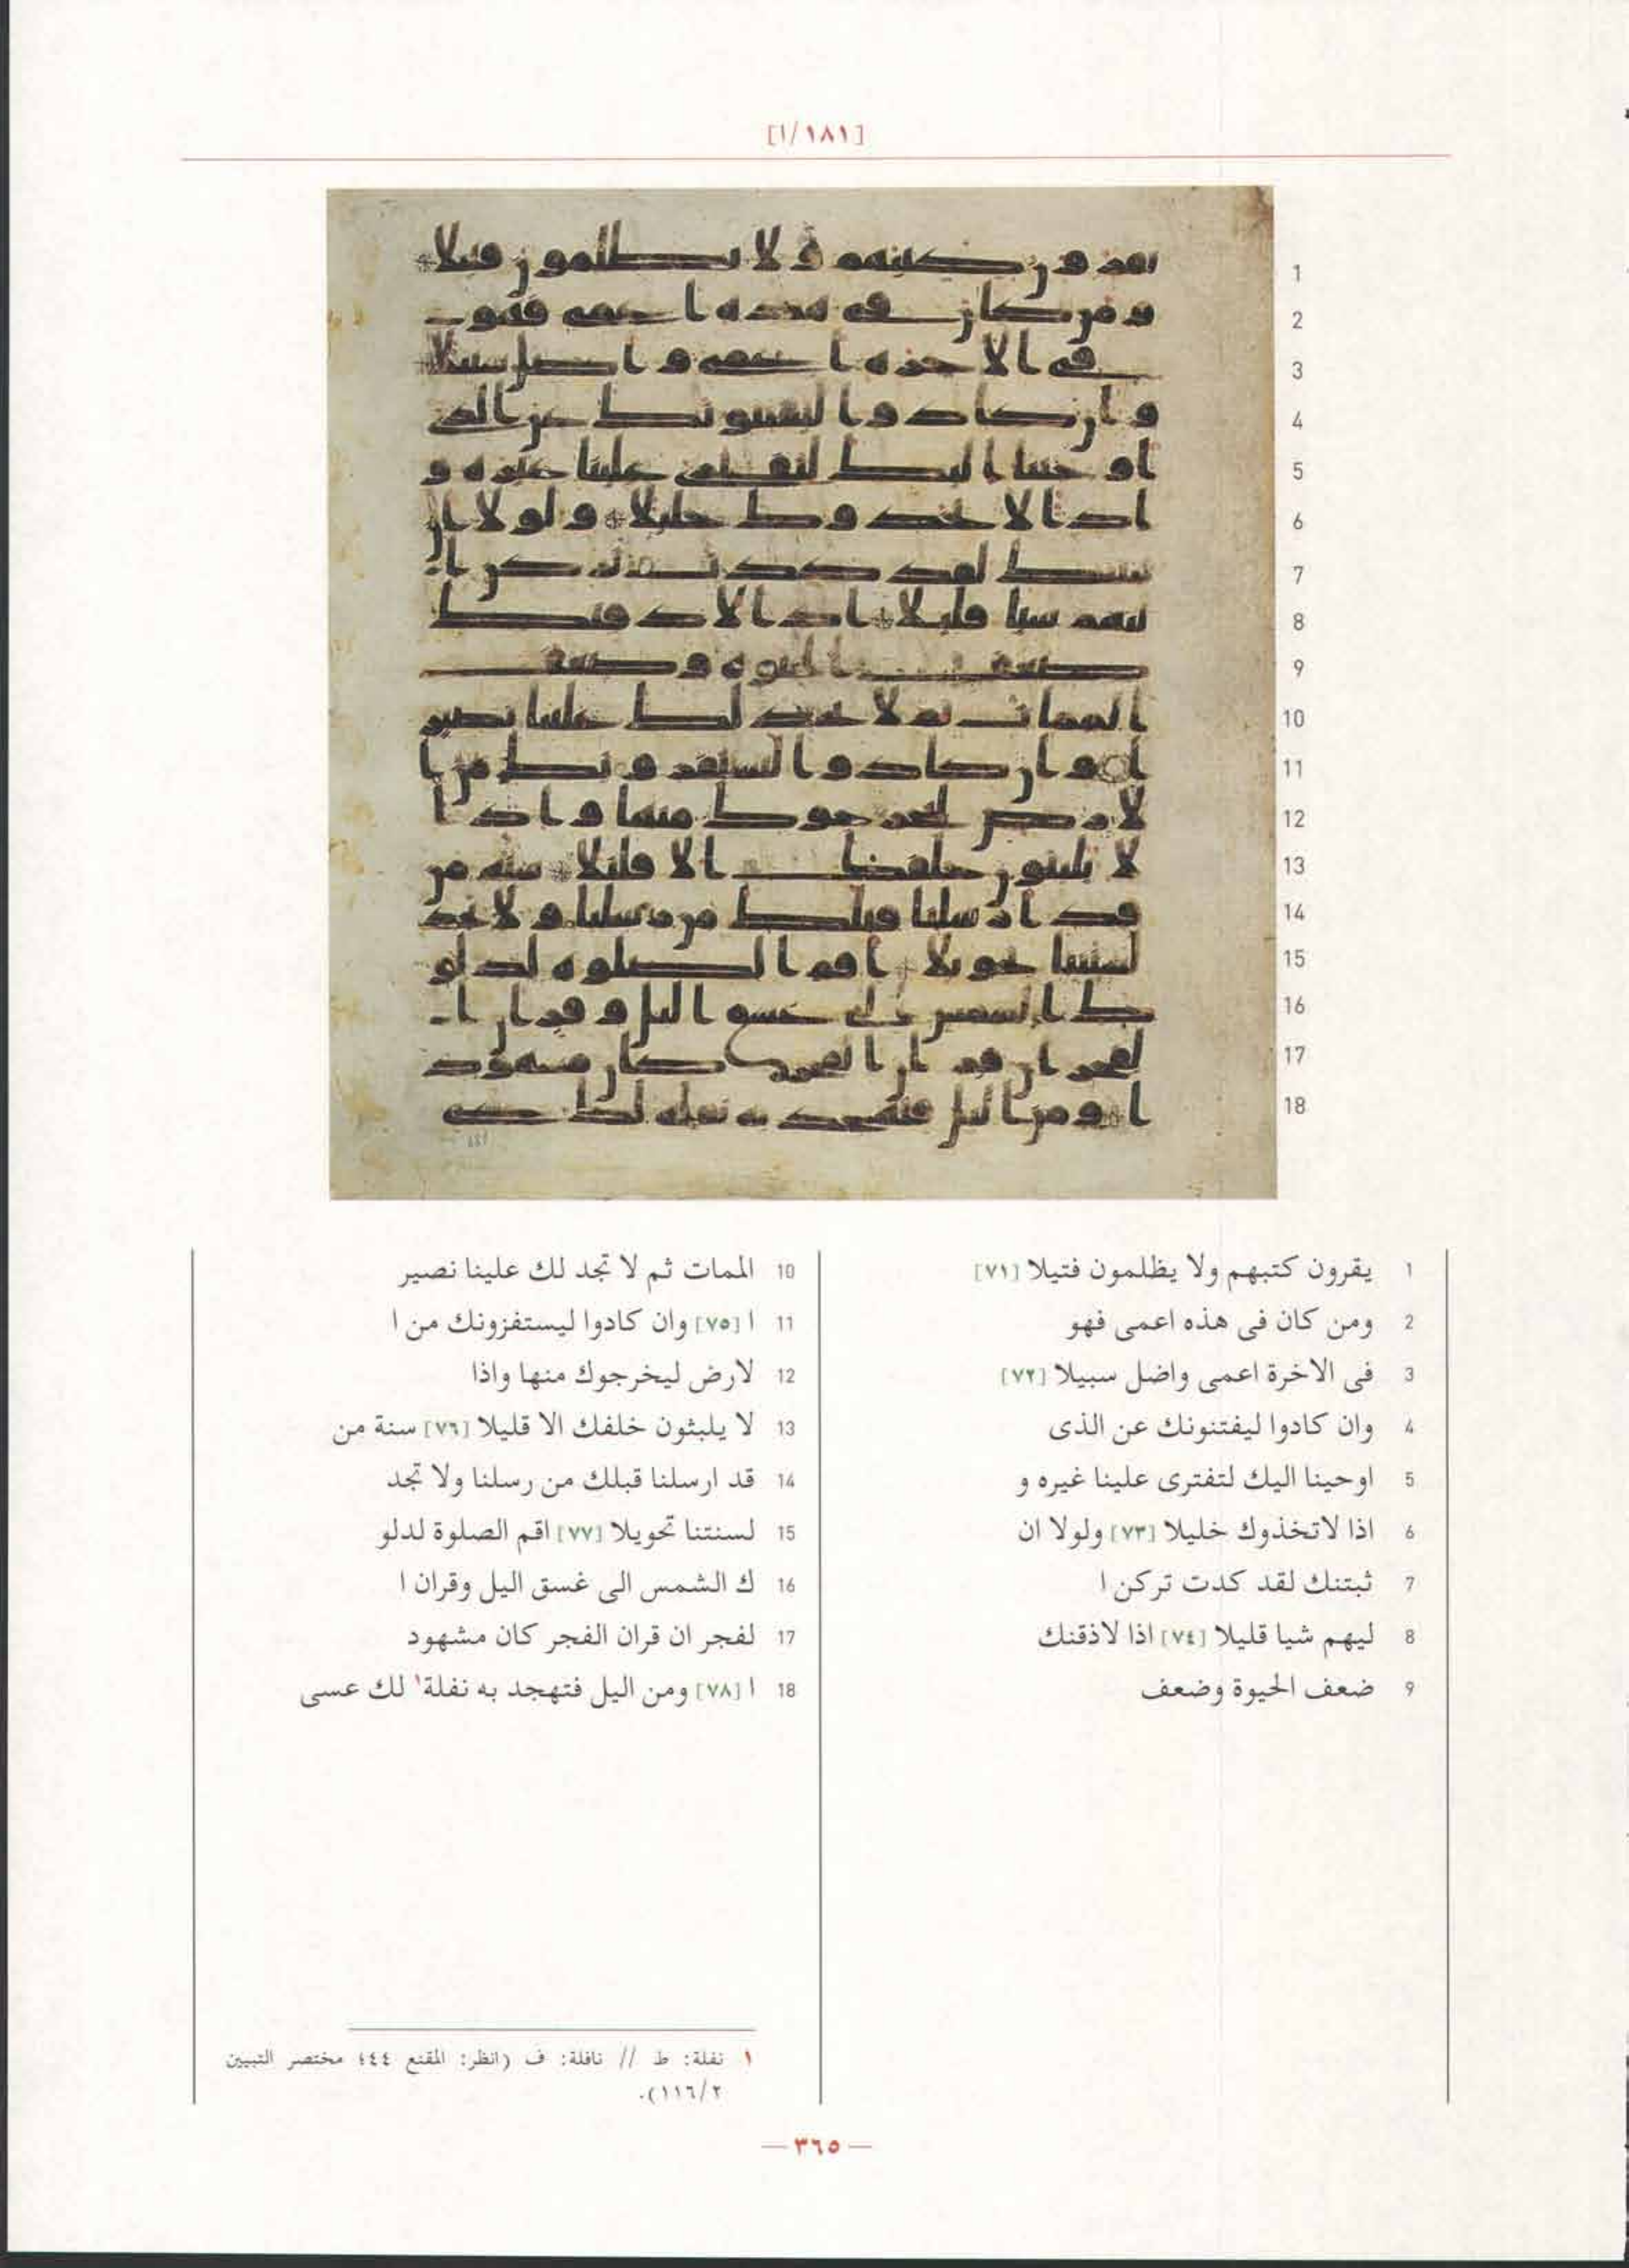 [١٨١/١]
1
2
3
4
5
6
7
8
9
10
11
12
13
14
15
16
17
18
1 يقرون كتبهم ولا يظلمون فتيلا [٧١]
2 ومن كان فى هذه اعمى فهو
3 فى الاخرة اعمى واضل سبيلا [٧٢]
4 وان كادوا ليفتنونك عن الذى
5 اوحينا اليك لتفترى علينا غيره و
6 اذا لاتخذوك خليلا [٧٣] ولولا ان
7 ثبتنك لقد كدت تركن ا
8 ليهم شيا قليلا [٧٤] اذا لاذقنك
9 ضعف الحيوة وضعف
10 الممات ثم لا تجد لك علينا نصير
11 ا [٧٥] وان كادوا ليستفزونك من ا
12 لارض ليخرجوك منها واذا
13 لا يلبثون خلفك الا قليلا [٧٦] سنة من
14 قد ارسلنا قبلك من رسلنا ولا تجد
15 لسنتنا تحويلا [٧٧] اقم الصلوة لدلو
16 ك الشمس الى غسق اليل وقران ا
17 لفجر ان قران الفجر كان مشهود
18 ا [٧٨] ومن اليل فتهجد به نفلة١ لك عسى
١ نفلة: ط // نافلة: ف (انظر: المقنع ٤٤٤ مختصر التبيين
١١٦/٢).
— ٣٦٥ —